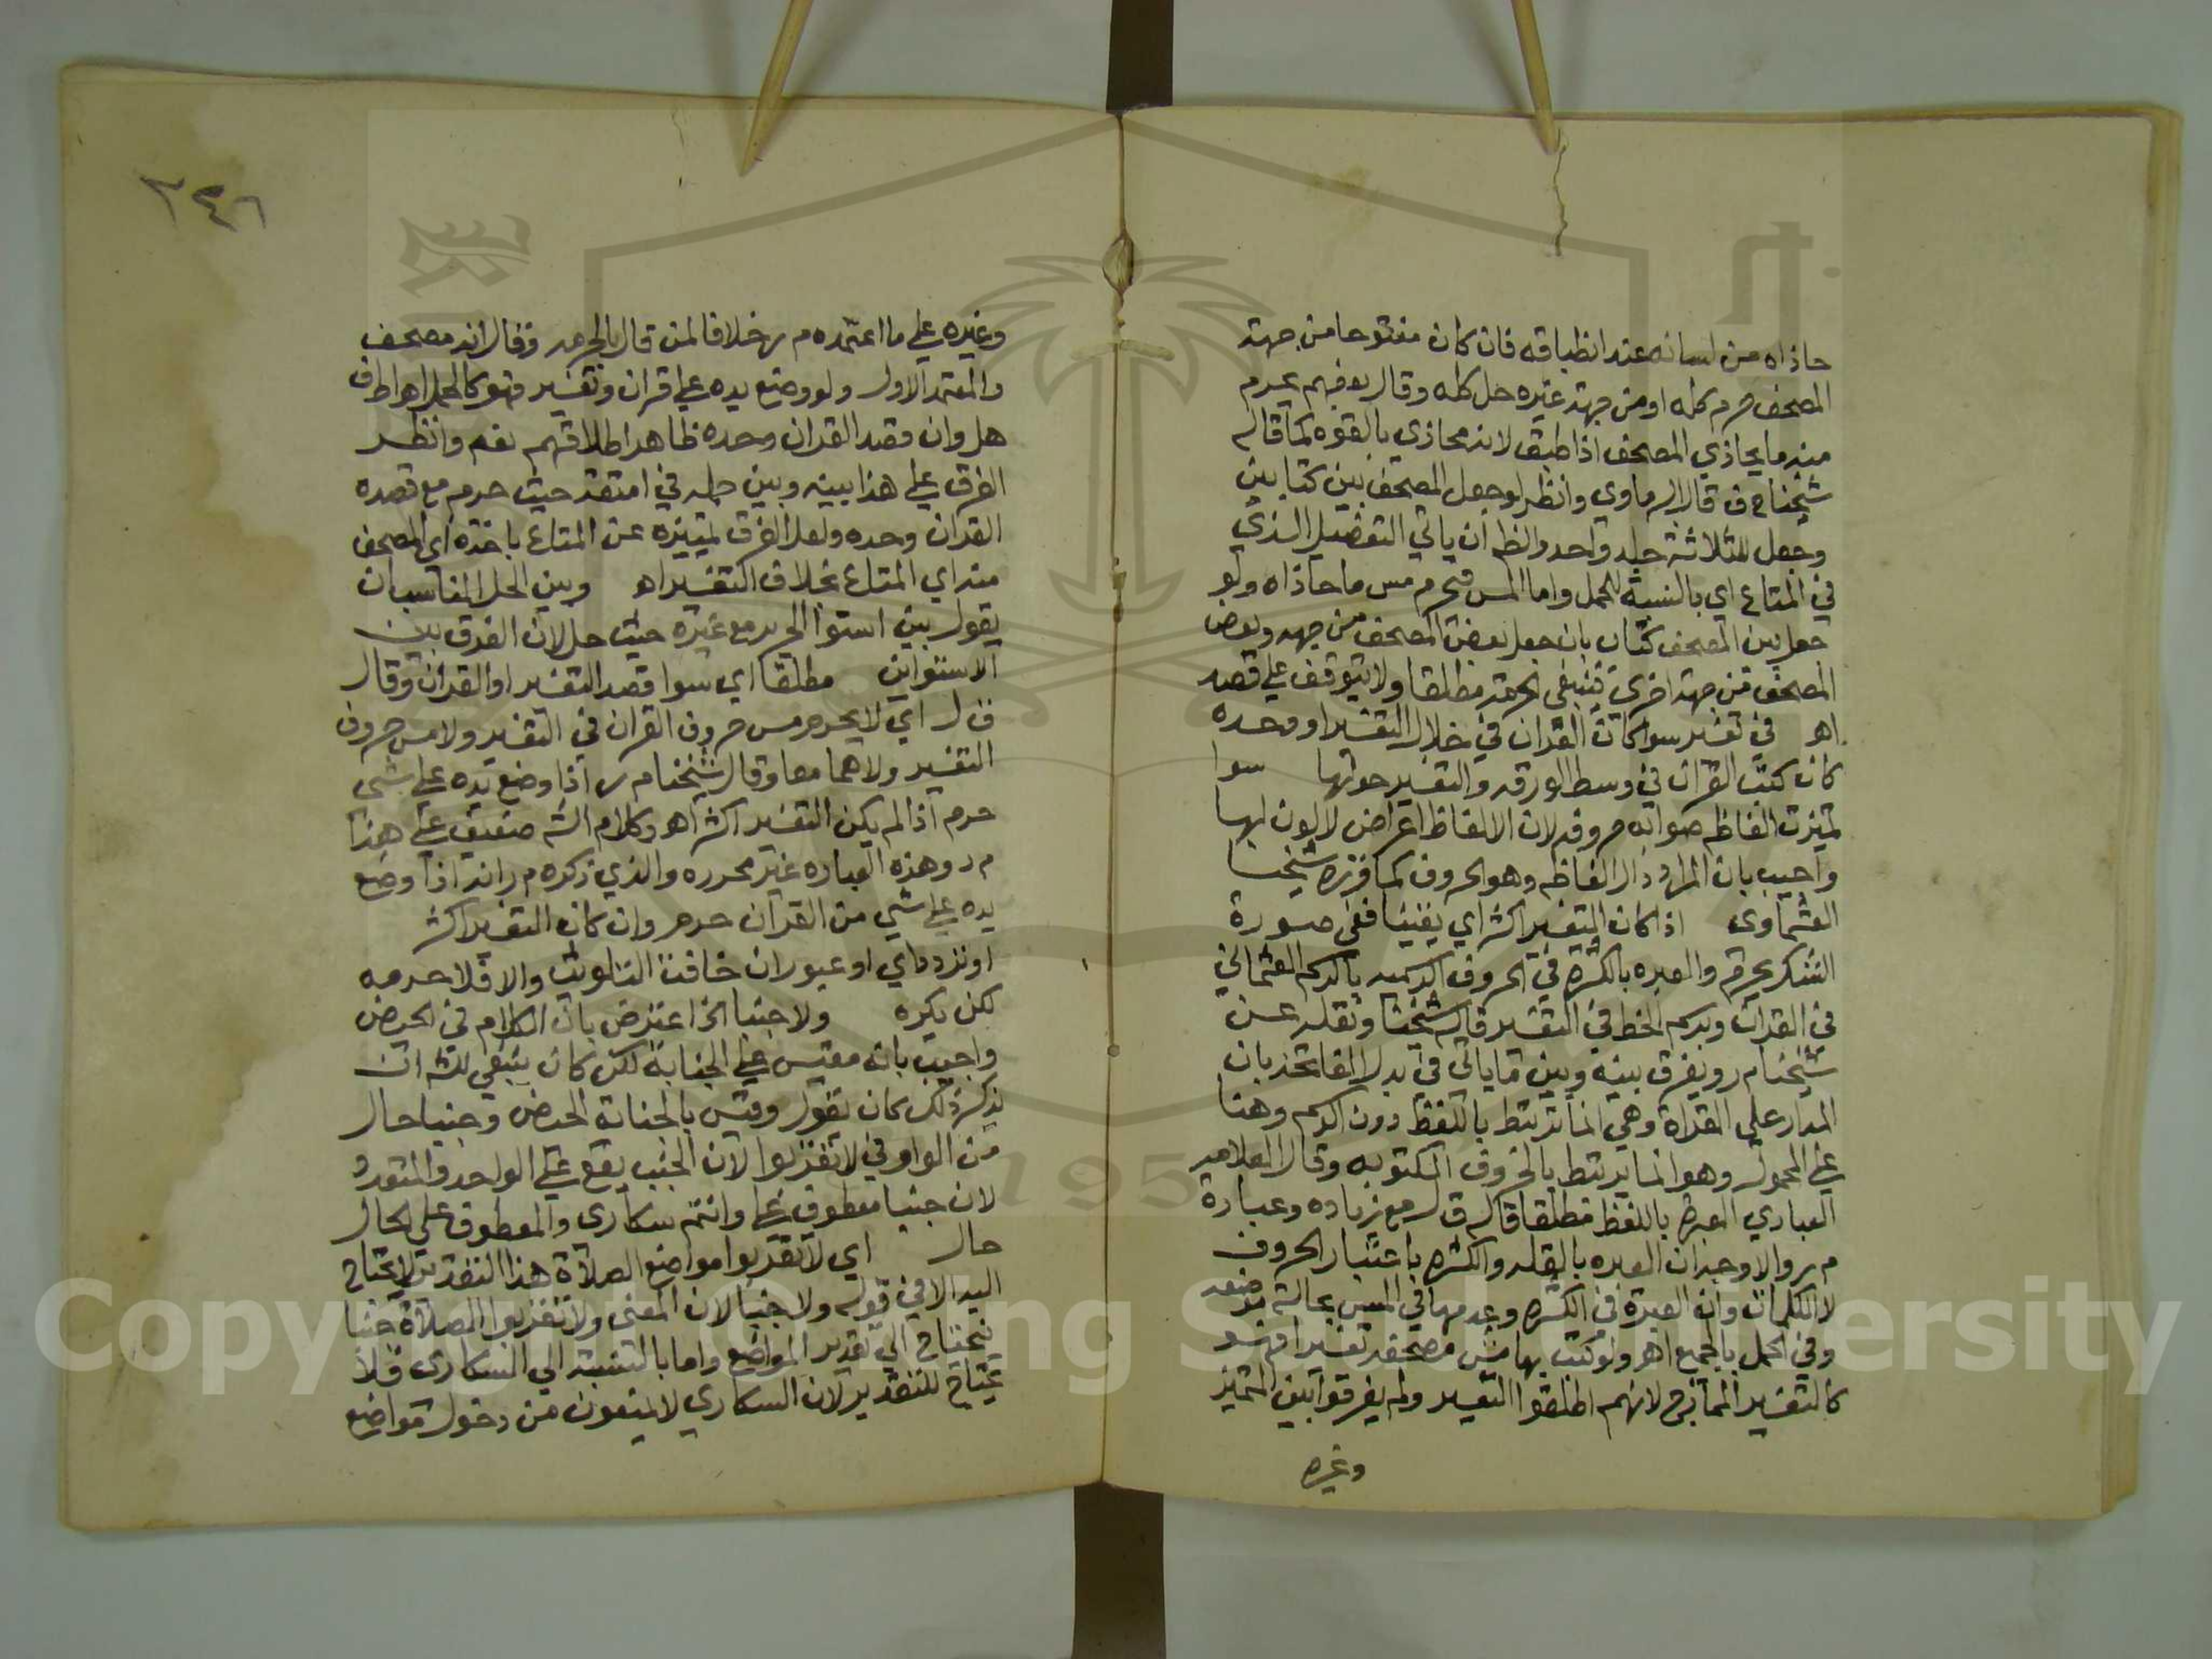 حاذاه من لسانه عند انطباقه فان كان مفتوحا من جهة
المصحف حرم كله او من جهة غيره حل كله وقال بعضهم يحرم
منه ما يحاذي المصحف اذا طبق لانه محاذي بالقوه كما قاله
شيخنا ح ف قال البرماوي وانظر لو جعل المصحف بين كتابين
وجعل للثلاثة جلد واحد والظ ان ياتي التفصيل الذي
في المتاع اي بالنسبة للحمل واما المس فيحرم مس ما حاذاه ولو
جعل بين المصحف كتاب بان جعل بعض المصحف من جهه وبعض
المصحف من جهة اخرى فينبغي الحرمة مطلقا ولا يتوقف على قصد
اهـ في تفسير سوا كانت القران في خلال التفسير او وحده
كان كتب القران في وسط الورقه والتفسير حولها سوا
تميزت الفاظه صوابه حروفه لان الالفاظ اعراض لا لون لها
واجيب بان المراد دال الفاظه وهو الحروف كما قرره شيخنا
العشماوى اذا كان التفسير اكثر اي يقينا ففى صورة
الشك يحرم والعبره بالكثره في الحروف الرسميه بالرسم العثماني
في القران وبرسم الخط في التفسير قاله شيخنا ونقله عن
شيخنا م ر ويفرق بينه وبين ما ياتي في بدل الفاتحه بان
المدار على القراة وهي انما ترتبط باللفظ دون الرسم وهنا
على المحمول وهو انما يرتبط بالحروف المكتوبه وقال العلامه
العبادي العبرة باللفظ مطلقا قاله ق ل مع زياده وعبارة
م ر والاوجه ان العبره بالقله والكثره باعتبار الحروف
لا الكلمات وان العبرة في الكثره وعدمها في المس بحالة موضعه
وفي الحمل بالجميع اهـ ولو كتب بهامش مصحف تفسيرا فهو
كالتفسير الممازج لانهم اطلقوا التفسير ولم يفرقوا بين المتميز
وغيره
٢٤٦
وغيره على ما اعتمده م ر خلافا لمن قال بالحرمه وقال انه مصحف
والمعتمد الاول ولو وضع يده على قران وتفسير فهو كالحمل اهـ اط ف
هل وان قصد القران وحده ظاهر اطلاقهم نعم وانظر
الفرق على هذا بينه وبين حمله في امتعة حيث حرم مع قصده
القران وحده ولعل الفرق تمييزه عن المتاع باخذه اي المصحف
منه اي المتاع بخلاف التفسير اهـ وبين الحل المناسب ان
يقول بين استوا الحرير مع غيره حيث حل لان الفرق بين
الاستواين مطلقا اي سوا قصد التفسير او القران وقال
ق ل اي لا يحرم مس حروف القران في التفسير ولا مس حروف
التفسير ولا هما معا وقال شيخنا م ر اذا وضع يده على شي
حرم اذا لم يكن التفسير اكثر اهـ وكلام الشه ضعيف على هذا
م د وهذه العباره غير محرره والذي ذكره م ر انه اذا وضع
يده على شي من القران حرم وان كان التفسير اكثر
او تردد اي او عبور ان خافت التلويث والا فلا حرمه
لكن يكره ولا جنبا الخ اعترض بان الكلام في الحيض
واجيب بانه مقيس على الجنابة لكن كان ينبغي للشه ان
يذكر ذلك كان يقول وقيس بالجنابة الحيض وجنبا حال
من الواو في لا تقربوا لان الجنب يقع على الواحد والمتعدد
لان جنبا معطوف على وانتم سكارى والمعطوف على الحال
حال اي لا تقربوا مواضع الصلاة هذا التقدير لا يحتاج
اليه الا في قوله ولا جنبا لان المعنى ولا تقربوا الصلاة جنبا
فيحتاج الى تقدير المواضع واما بالنسبة الي السكارى فلا
يحتاج للتقدير لان السكارى لا يمنعون من دخول مواضع
Copyright © King Saud University
195